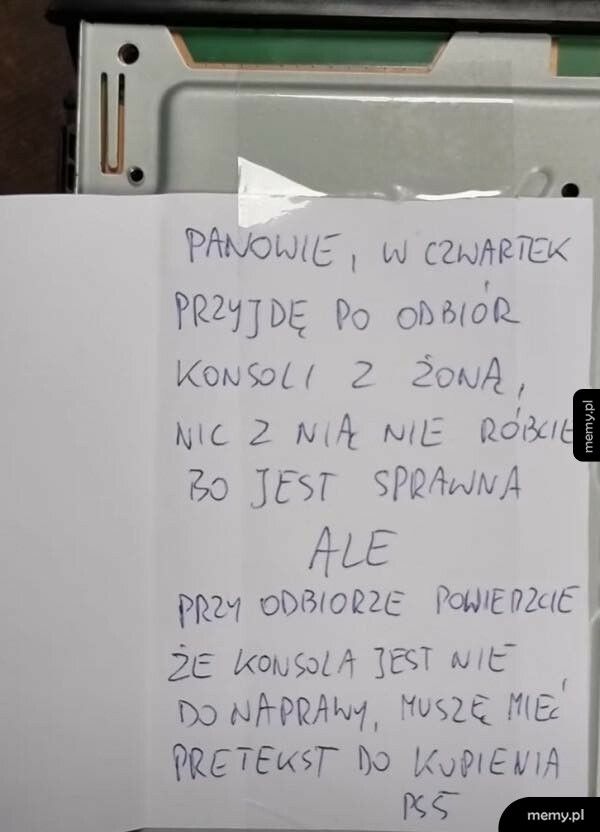 PANOWIE, W CZWARTEK
PRZYJDĘ PO ODBIÓR
KONSOLI Z ŻONĄ,
NIC Z NIĄ NIE RÓBCIE
BO JEST SPRAWNA
ALE
PRZY ODBIORZE POWIEDZCIE
ŻE KONSOLA JEST NIE
DO NAPRAWY, MUSZĘ MIEĆ
PRETEKST DO KUPIENIA
PS5
memy.pl
memy.pl